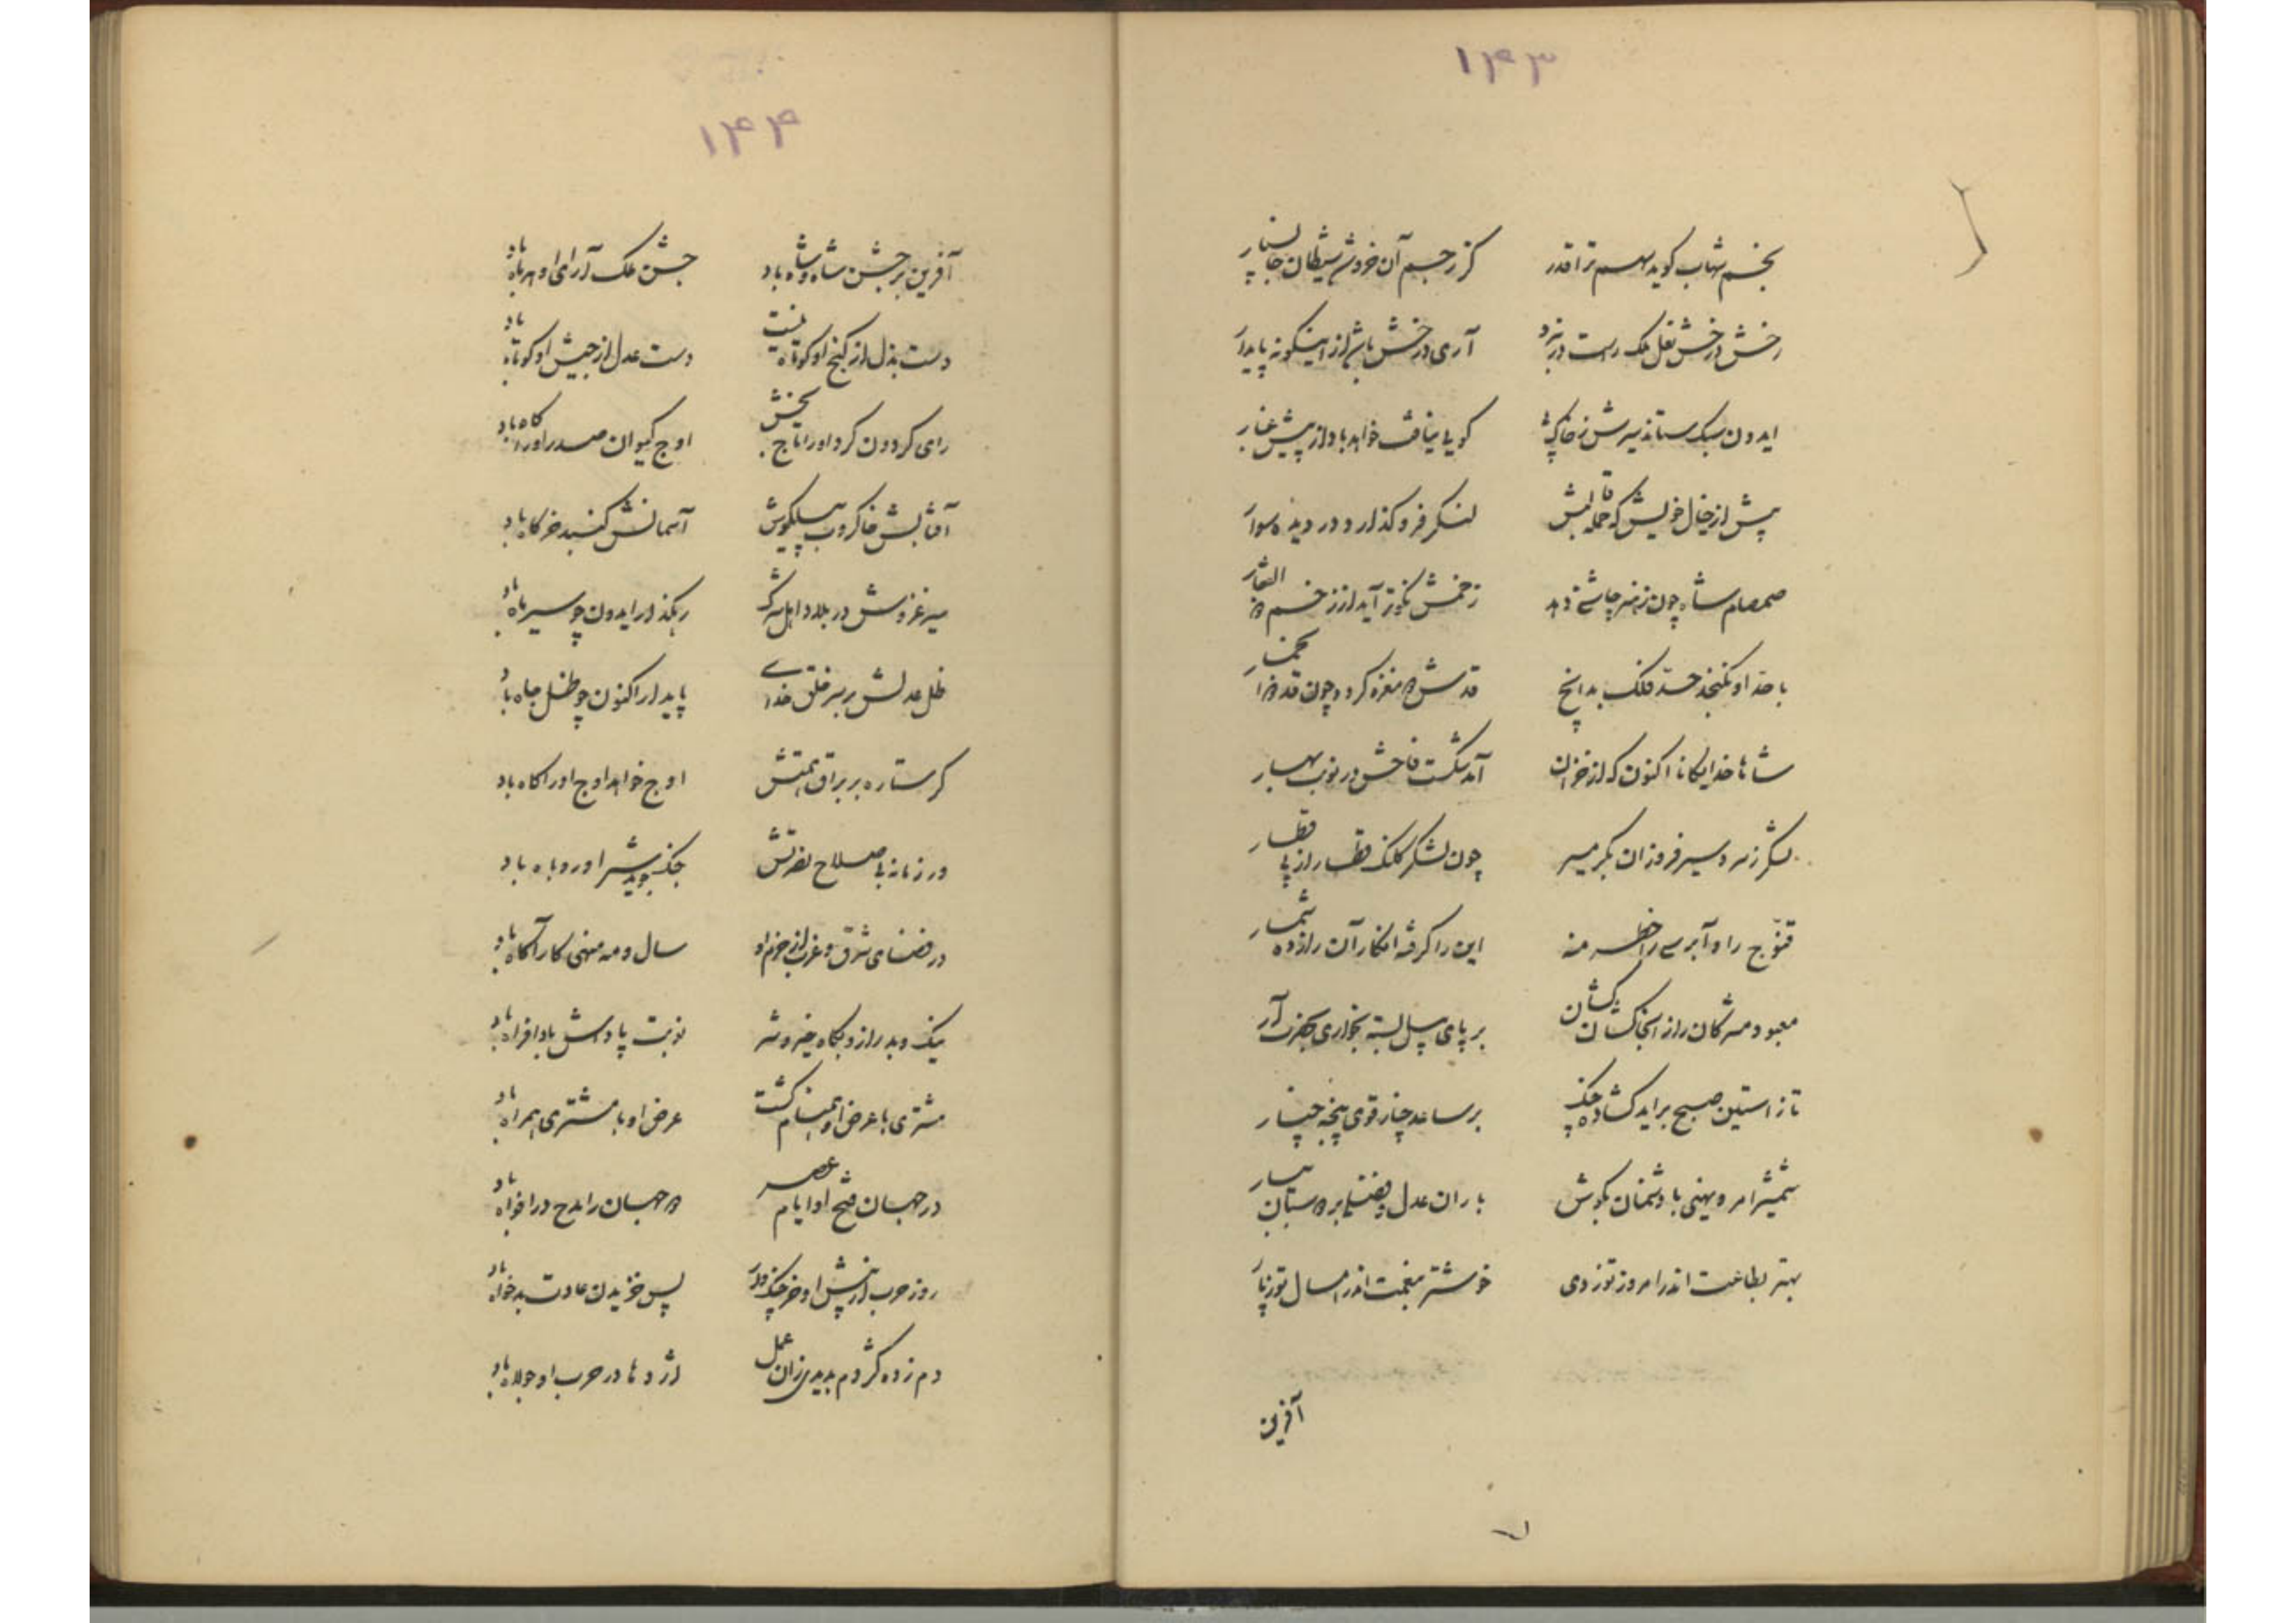 ۱۴۳
نجم شهاب کوید سهم ترا قدر کز رجم آن خروش شیطان جان سپار
رخش درخش نعل ملک راست در نبرد آری درخش باشد از اینکونه پایدار
ایدون سبک ستاند سرش ز خاک کویی نیافت خواهد باد از پیش غبار
پیش از خیال خویش که حمله قالبش لنکر فرو کذارد و در دیده سوار
صمصام شاه چون ز نسر چاشنی دهد زخمش نکوتر آید از زخم ذوالفقار
با حد او نکنجد حد فلک بدانچ قدش
شاها خدایکانا اکنون که از خزان آمد شکست فاحش در نوبت بهار
لشکر ز سردسیر فرو ران بکرمسیر چون لشکر کلنک قطار از پی قطار
قنوج را و آبرسی را خطر منه این را کرفته انکار آن را زده شمار
معبود مشرکان را زانجا کشان کشان بر پای پیل بسته بخواری بحضرت آر
تا ز استین صبح براید کشاده چنک بر ساعد چنار قوی پنجه چنار
شمشیر امر و نهی با دشمنان بکوش باران عدل بر دوستان ببار
بهتر بطاعت اندر امروز تو ز دی خوشتر بنعمت اندر امسال تو ز پار
آفرین
۱۴۴
آفرین بر جشن شاه و شاه باد جشن ملک آرای او هر ماه باد
دست بذل از کنج او کوتاه نیست دست عدل از جیش او کوتاه باد
رای کردون کرد او را تاج بخش اوج کیوان صدر او را کاه باد
آفتابش خاکروب پیلکوش آسمانش کنبد خرکاه باد
سیر غزوش در بلاد اهل شرک رهکذار ایدون چو سیر ماه باد
ظل عدلش بر سر خلق خدای پایدار اکنون چو ظل جاه باد
کر ستاره بر براق همتش اوج خواهد اوج او را کاه باد
ور زمانه با صلاح نصرتش جنک جوید شیر او روباه باد
در فضای شرق و غرب از حزم او سال و مه منهی کار آکاه باد
نیک و بد را زو بکاه خیر و شر نوبت پاداش باد افراه باد
مشتری با عرض او همنام کشت عرض او با مشتری همراه باد
در جهان فتح او ایام عصر هر جهان را مدح در افواه باد
روز حرب از پیش او خرچنک وار پس خزیدن عادت بدخواه باد
دم زده کژدم بدیدی زان عمل اژدها در حرب او جولاه باد